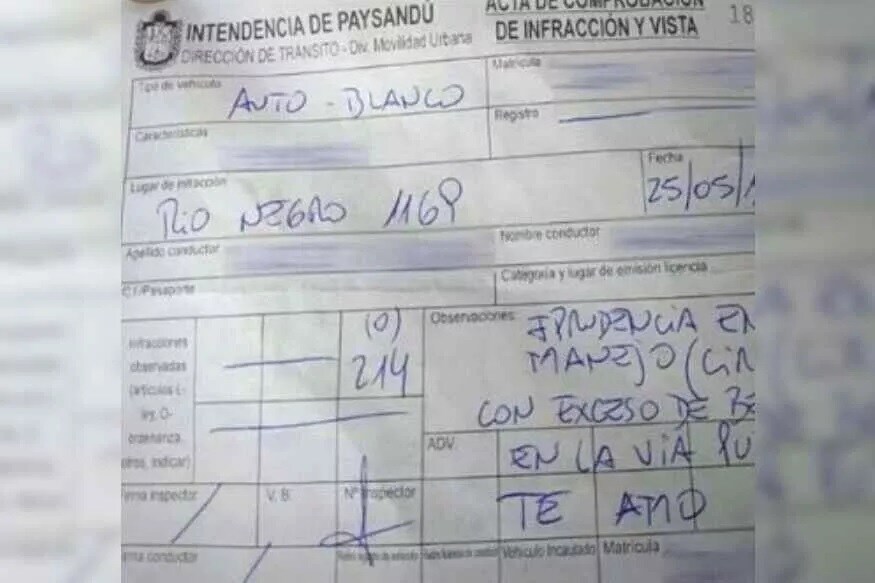 INTENDENCIA DE PAYSANDÚ
DIRECCIÓN DE TRÁNSITO - Div. Movilidad Urbana
ACTA DE COMPROBACIÓN
DE INFRACCIÓN Y VISTA
18
Tipo de vehículo
AUTO - BLANCO
Matrícula
Características
Registro
Lugar de infracción
RIO NEGRO 1169
Fecha
25/05/1
Apellido conductor
Nombre conductor
C.I/Pasaporte
Categoría y lugar de emisión licencia
Infracciones
observadas
(artículos L-
ley, O-
ordenanza,
otros, indicar)
(0)
214
Observaciones:
IPRUDENCIA EN
MANEJO (CIR
CON EXCESO DE BE
ADV.
EN LA VIA PU
TE AMO
irma inspector
V. B.
Nº Inspector
irma conductor
Vehículo Incautado
Matrícula